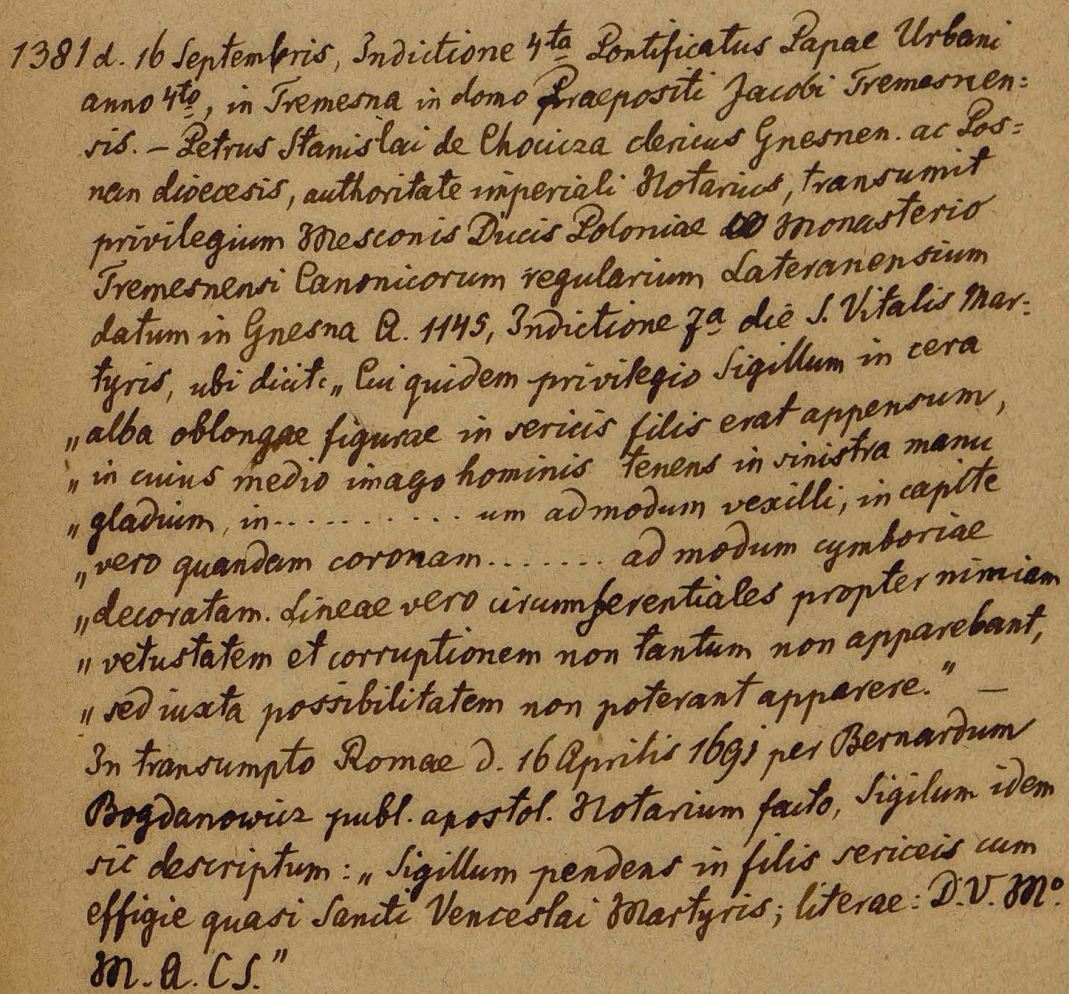 1381 d. 16 Septembris, Indictione 4ta Pontificatus Papae Urbani
anno 4to, in Tremesna in domo Praepositi Jacobi Tremesnen:
sis. – Petrus Stanislai de Chocicza clericus Gnesnen. ac Pos=
nan dioecesis, authoritate imperiali Notarius, transumit
privilegium Mesconis Ducis Poloniae Monasterio
Tremesnensi Canonicorum regularium Lateranensium
datum in Gnesna A. 1145, Indictione 7a die S. Vitalis Mar-
tyris, ubi dicit: „Cui quidem privilegio Sigillum in cera
„alba oblongae figurae in sericis filis erat appensum,
„in cuius medio imago hominis tenens in sinistra manu
„gladium, in........... um ad modum vexilli, in capite
„vero quandam coronam....... ad modum cymboriae
„decoratam. Lineae vero circumferentiales propter nimiam
„vetustatem et corruptionem non tantum non apparebant,
„sed iuxta possibilitatem non poterant apparere." —
In transumpto Romae d. 16 Aprilis 1691 per Bernardum
Bogdanowicz publ. apostol. Notarium facto, Sigilum idem
sic descriptum: „Sigillum pendens in filis sericeis cum
effigie quasi Sancti Venceslai Martyris; literae: D.V. Mo.
M. A. C S."